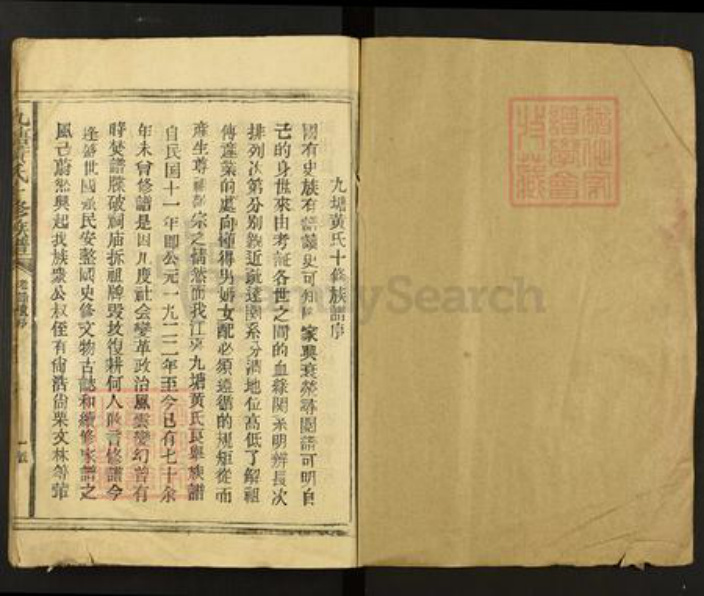 九塘黃氏十修族譜序
國有史族有譜讀史可知國家興衰榮辱閱譜可明自
己的身世來由考証各世之間的血緣関系明辨長次
排列次第分別親近疏遠関系分清地位高低了解祖
傳產業的處向懂得男婚女配必須遵循的規矩從而
產生尊祖敬宗之情然而我江夏九塘黃氏良舉族譜
自民国十一年即公元一九二二年至今已有七十余
年未曾修譜是因几度社会變革政治風雲變幻曾有
時焚譜牒破祠庙拆祖牌毁坟復耕何人敢言修譜今
逢盛世國泰民安整國史修文物古誌和續修家譜之
風已蔚然興起我族衆公叔侄有尙浩尙榮文林等
九塘黃氏十修族譜
FamilySearch